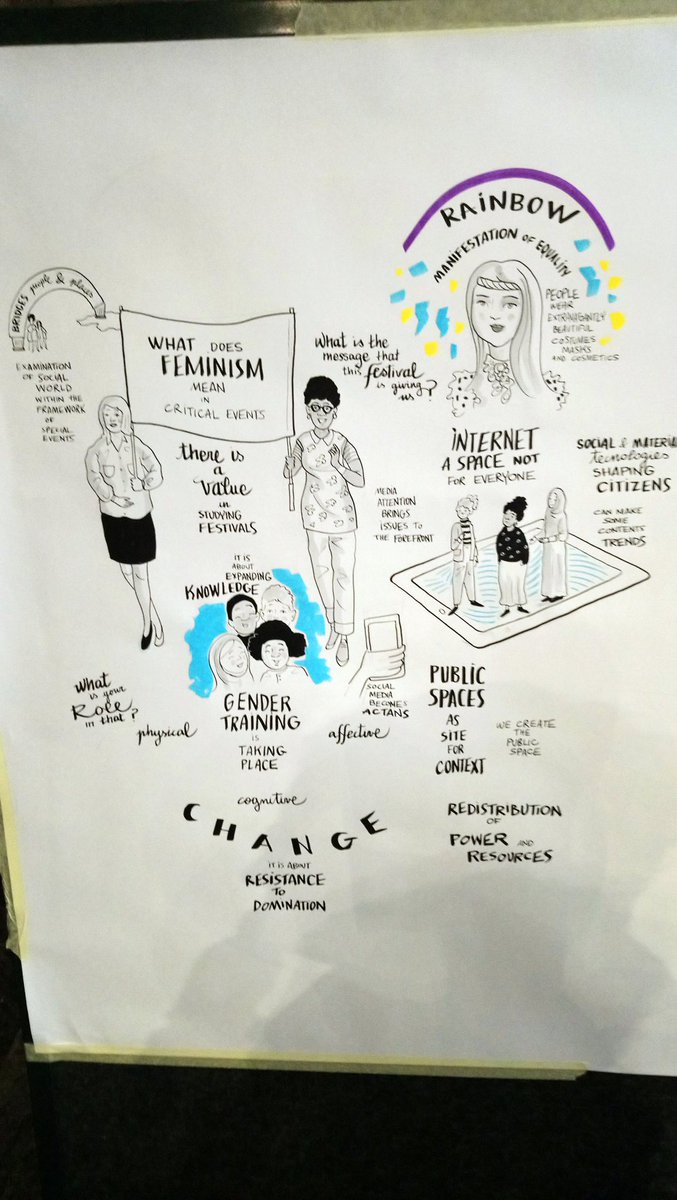 BRIDGES people & places
EXAMINATION
OF SOCIAL
WORLD
WITHIN THE
FRAMEWORK
OF
SPECIAL
EVENTS
WHAT DOES
FEMINISM
MEAN
IN
CRITICAL EVENTS
there is
a
value
in
STUDYING
FESTIVALS
What is the
message that
this festival
is giving
us?
MEDIA
ATTENTION
BRINGS
ISSUES TO
THE FOREFRONT
RAINBOW
MANIFESTATION OF EQUALITY
PEOPLE
WEAR
EXTRAVAGANTLY
BEAUTIFUL
COSTUMES
MASKS
AND COSMETICS
INTERNET
A SPACE NOT
FOR EVERYONE
SOCIAL & MATERIAL
tecnologies
SHAPING
CITIZENS
CAN MAKE
SOME
CONTENTS
TRENDS
IT IS
ABOUT
EXPANDING
KNOWLEDGE
What
is your
Role
in that?
physical
GENDER
TRAINING
IS
TAKING
PLACE
affective
SOCIAL
MEDIA
BECOMES
ACTANS
cognitive
CHANGE
IT IS ABOUT
RESISTANCE
TO
DOMINATION
PUBLIC
SPACES
AS
SITE
FOR
CONTEXT
WE CREATE
THE
PUBLIC
SPACE
REDISTRIBUTION
OF
POWER AND
RESOURCES